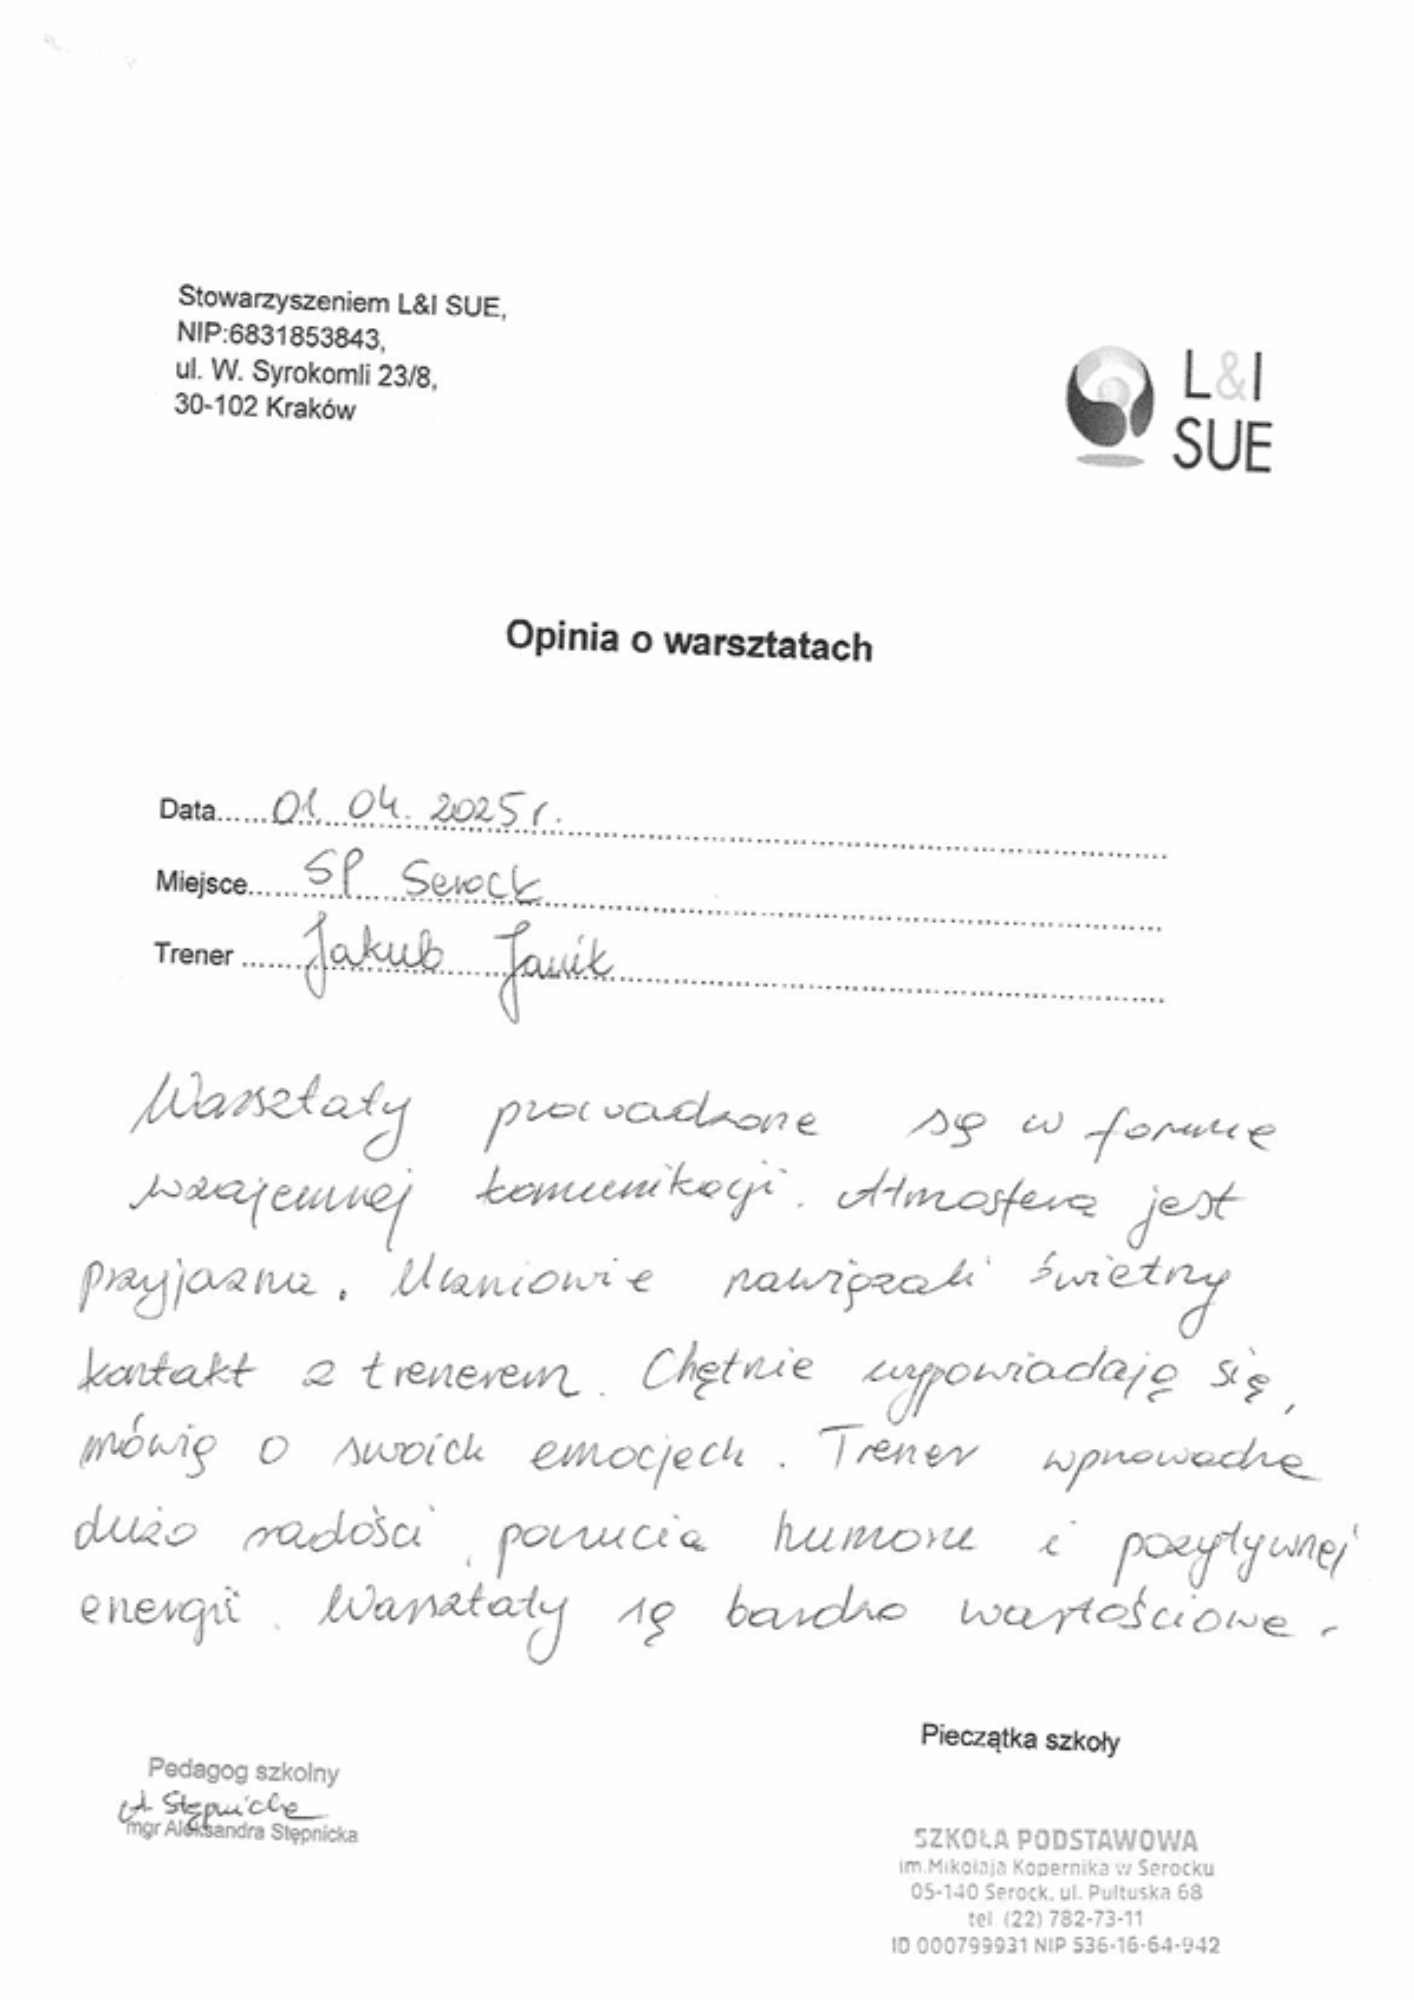 Stowarzyszeniem L&I SUE,
NIP:6831853843,
ul. W. Syrokomli 23/8,
30-102 Kraków
L&I
SUE
Opinia o warsztatach
Data......01.04.2025r.
Miejsce......SP Serock
Trener......Jakub Janik
Warsztaty prowadzone są w formie
wzajemnej komunikacji. Atmosfera jest
przyjazna. Uczniowie nawiązali świetny
kontakt z trenerem. Chętnie wypowiadają się,
mówią o swoich emocjach. Trener wprowadza
dużo radości, poczucia humoru i pozytywnej
energii. Warsztaty są bardzo wartościowe.
Pieczątka szkoły
Pedagog szkolny
A. Stępnicka
mgr Aleksandra Stępnicka
SZKOŁA PODSTAWOWA
im.Mikołaja Kopernika w Serocku
05-140 Serock, ul. Pułtuska 68
tel. (22) 782-73-11
ID 000799931 NIP 536-16-64-942